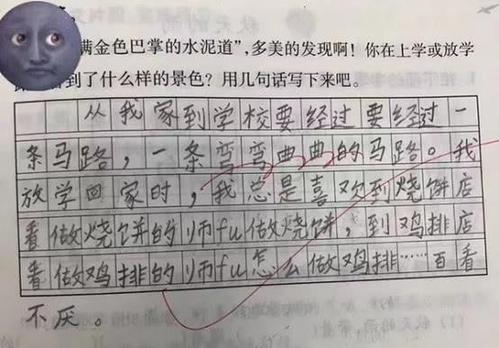 满金色巴掌的水泥道”,多美的发现啊!你在上学或放学
到了什么样的景色?用几句话写下来吧。
从我家到学校要经过要经过一
条马路,一条弯弯曲曲的马路。我
放学回家时,我总是喜欢到烧饼店
看做烧饼的师fu做烧饼,到鸡排店
看做鸡排的师fu怎么做鸡排……百看
不厌。